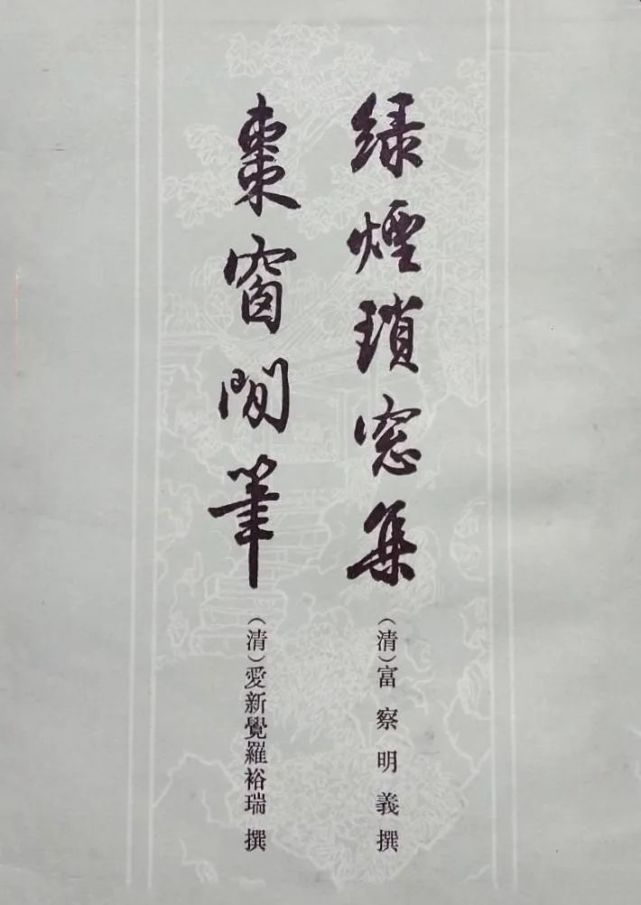 绿煙瑣窓集
(清)富察明義 撰
棗窗閒筆
(清)愛新覺羅裕瑞 撰